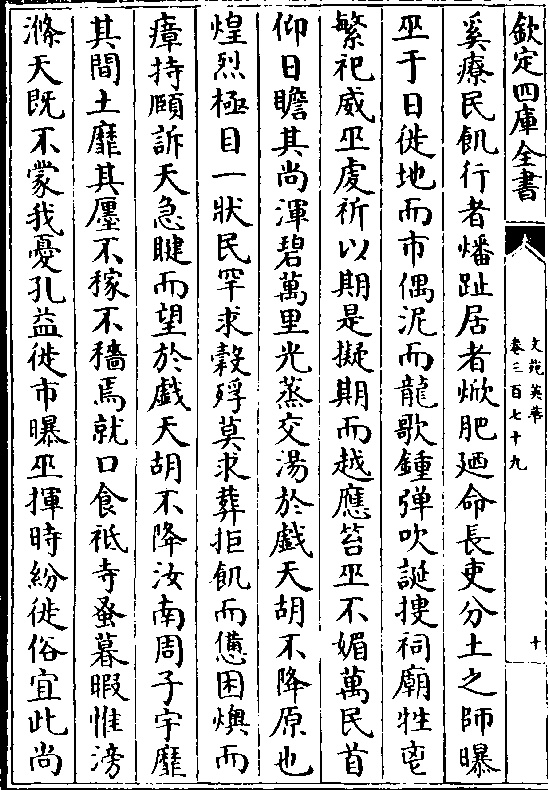 欽定四庫全書
文苑英華
卷三百七十九
十
奚療民飢行者燔趾居者焮肥廼命長吏分土之師曝
巫于日徙地而市偶泥而龍歌鍾弹吹誕摟祠廟牲㐫
繁祀威巫虔祈以期是擬期而越應笞巫不媚萬民首
仰日瞻其尚渾碧萬里光蒸交湯於戲天胡不降原也
煌烈極目一狀民罕求穀殍莫求葬拒飢而憊困燠而
瘴持頤訴天急睷而望於戲天胡不降汝南周子宇靡
其間土靡其㕓不稼不穡焉就口食祇寺蚤暮暇惟滂
滌天既不蒙我憂孔益徙市曝巫揮時紛徙俗宜此尚